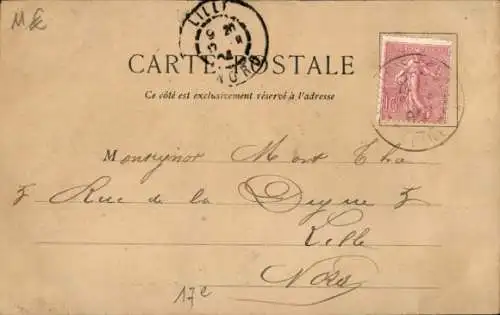 M
LILLE
NORD
CARTE POSTALE
Ce côté est exclusivement réservé à l'adresse
10
Monsignor Mont Cha
7 Rue de la Digue 7
Lille
Nord
17e